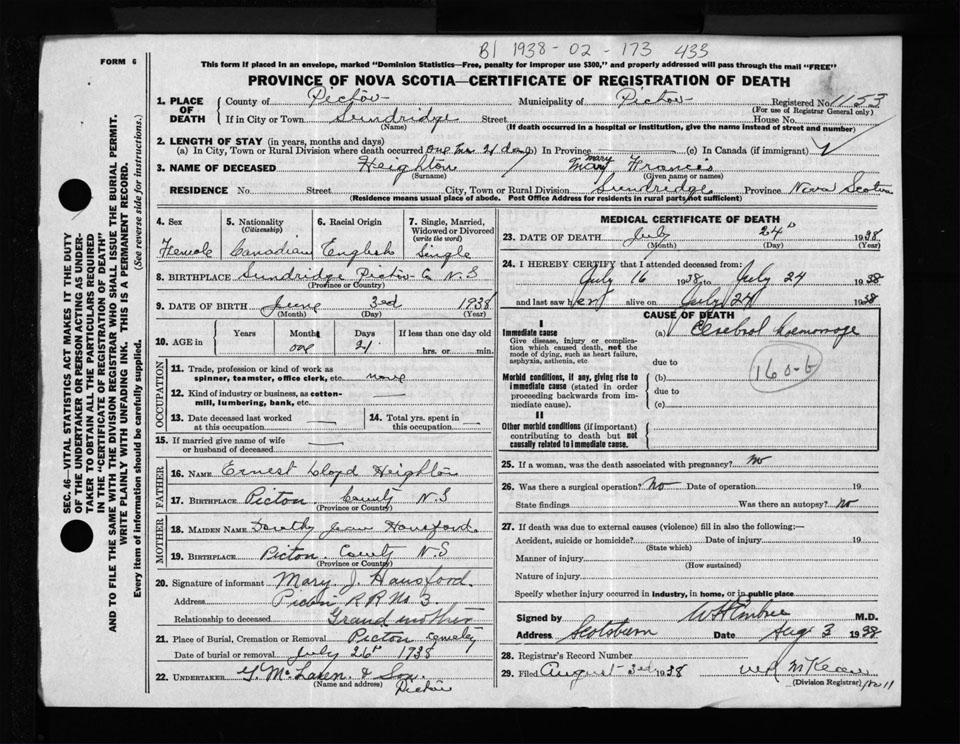 B1 1938 - 02 - 173 433
FORM 6
This form if placed in an envelope, marked "Dominion Statistics—Free, penalty for improper use $300," and properly addressed will pass through the mail "FREE"
PROVINCE OF NOVA SCOTIA—CERTIFICATE OF REGISTRATION OF DEATH
SEC. 46—VITAL STATISTICS ACT MAKES IT THE DUTY
OF THE UNDERTAKER OR PERSON ACTING AS UNDER-
TAKER TO OBTAIN ALL THE PARTICULARS REQUIRED
IN THE "CERTIFICATE OF REGISTRATION OF DEATH"
AND TO FILE THE SAME WITH THE DIVISION REGISTRAR WHO SHALL ISSUE THE BURIAL PERMIT.
WRITE PLAINLY WITH UNFADING INK. THIS IS A PERMANENT RECORD.
Every item of information should be carefully supplied. (See reverse side for instructions.)
1. PLACE OF DEATH
County of Pictou Municipality of Pictou Registered No. 1153
(For use of Registrar General only)
If in City or Town Sundridge Street House No.
(Name) (If death occurred in a hospital or institution, give the name instead of street and number)
2. LENGTH OF STAY (in years, months and days)
(a) In City, Town or Rural Division where death occurred one mo 21 days (b) In Province (c) In Canada (if immigrant)
3. NAME OF DECEASED Heighton mary Francis
(Surname) (Given name or names)
RESIDENCE No. Street City, Town or Rural Division Sundridge Province Nova Scotia
(Residence means usual place of abode. Post Office Address for residents in rural parts not sufficient)
4. Sex 5. Nationality 6. Racial Origin 7. Single, Married,
(Citizenship) Widowed or Divorced
(write the word)
Female Canadian English Single
8. BIRTHPLACE Sundridge Pictou Co N.S
(Province or Country)
9. DATE OF BIRTH June 3rd 1938
(Month) (Day) (Year)
10. AGE in Years Months Days If less than one day old
one 21 hrs. or min.
OCCUPATION
11. Trade, profession or kind of work as
spinner, teamster, office clerk, etc. none
12. Kind of industry or business, as cotton-
mill, lumbering, bank, etc.
13. Date deceased last worked
at this occupation
14. Total yrs. spent in
this occupation
15. If married give name of wife
or husband of deceased
FATHER
16. NAME Ernest Lloyd Heighton
17. BIRTHPLACE Picton County N.S
(Province or Country)
MOTHER
18. MAIDEN NAME Dorothy Jean Hansford
19. BIRTHPLACE Picton County N.S
(Province or Country)
20. Signature of informant Mary J. Hansford
Address Picton R R No 3
Relationship to deceased Grandmother
21. Place of Burial, Cremation or Removal Picton Cemetery
Date of burial or removal July 26th 1938
22. UNDERTAKER G. McLaren & Son
(Name and address) Pictou
MEDICAL CERTIFICATE OF DEATH
23. DATE OF DEATH July 24th 1938
(Month) (Day) (Year)
24. I HEREBY CERTIFY that I attended deceased from:
July 16 1938 to July 24 1938
and last saw her alive on July 24 1938
CAUSE OF DEATH
I
Immediate cause (a) Cerebral haemorrage
Give disease, injury or complica-
tion which caused death, not the
mode of dying, such as heart failure,
asphyxia, asthenia, etc
due to
160-b
Morbid conditions, if any, giving rise to
immediate cause (stated in order
proceeding backwards from im-
mediate cause).
(b)
due to
(c)
II
Other morbid conditions (if important)
contributing to death but not
causally related to immediate cause.
25. If a woman, was the death associated with pregnancy? no
26. Was there a surgical operation? No Date of operation 19
State findings Was there an autopsy? No
27. If death was due to external causes (violence) fill in also the following:—
Accident, suicide or homicide? Date of injury 19
(State which)
Manner of injury
(How sustained)
Nature of injury
Specify whether injury occurred in industry, in home, or in public place
Signed by W H Embree M.D.
Address Scotsburn Date Aug 3 1938
28. Registrar's Record Number
29. Filed August 3rd 1938
(Division Registrar) No 11